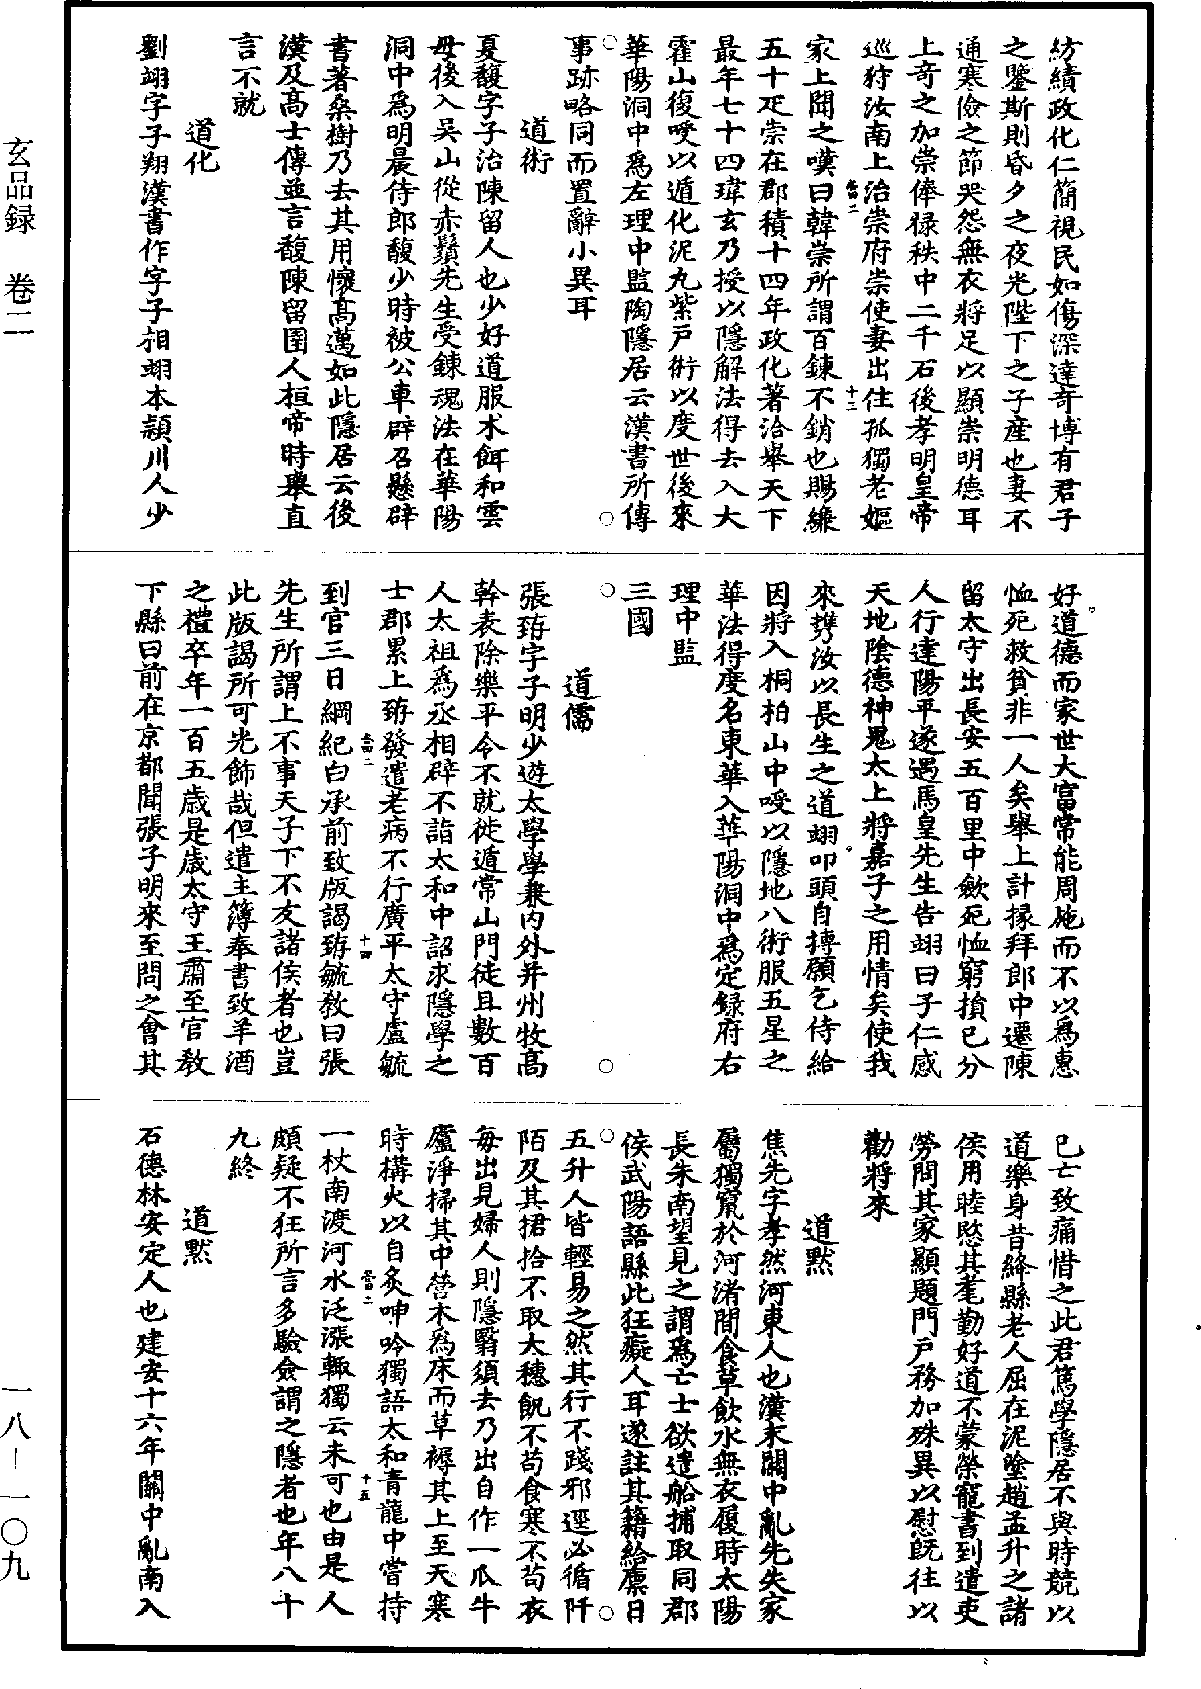 紡績政化仁簡視民如傷深達奇博有君子
之鑒斯則昏夕之夜光陛下之子產也妻不
通寒儉之節哭怨無衣將足以顯崇明德耳
上奇之加崇俸祿秩中二千石後孝明皇帝
巡狩汝南上治崇府崇使妻出住孤獨老嫗
家上聞之嘆曰韓崇所謂百鍊不銷也賜縑
五十疋崇在郡積十四年政化著洽舉天下
最年七十四瑋玄乃授以隱解法得去入大
霍山復受以遁化泥丸紫戶術以度世後來
華陽洞中爲左理中監陶隱居云漢書所傳
事跡略同而置辭小異耳
道術
夏馥字子治陳留人也少好道服朮餌和雲
母後入吳山從赤鬚先生受鍊魂法在華陽
洞中爲明晨侍郎馥少時被公車辟召懸辟
書著桑樹乃去其用懷高邁如此隱居云後
漢及高士傳並言馥陳留圉人桓帝時舉直
言不就
道化
劉翊字子翔漢書作字子相翊本潁川人少
好道德而家世大富常能周施而不以爲惠
恤死救貧非一人矣舉上計掾拜郎中遷陳
留太守出長安五百里中斂死恤窮損己分
人行達陽平遂遇馬皇先生告翊曰子仁感
天地陰德神鬼太上將嘉子之用情矣使我
來攜汝以長生之道翊叩頭自摶願乞侍給
因將入桐柏山中受以隱地八術服五星之
華法得度名東華入華陽洞中爲定錄府右
理中監
三國
道儒
張臶字子明少遊太學學兼內外并州牧高
幹表除樂平令不就徙遁常山門徒且數百
人太祖爲丞相辟不詣太和中詔求隱學之
士郡累上臶發遣老病不行廣平太守盧毓
到官三日綱紀白承前致版謁臶毓教曰張
先生所謂上不事天子下不友諸侯者也豈
此版謁所可光飾哉但遣主簿奉書致羊酒
之禮卒年一百五歲是歲太守王肅至官教
下縣曰前在京都聞張子明來至問之會其
已亡致痛惜之此君篤學隱居不與時競以
道樂身昔絳縣老人屈在泥塗趙孟升之諸
侯用睦愍其耄勤好道不蒙榮寵書到遣吏
勞問其家顯題門戶務加殊異以慰既往以
勸將來
道默
焦先字孝然河東人也漢末關中亂先失家
屬獨竄於河渚間食草飲水無衣履時太陽
長朱南望見之謂爲亡士欲遣船捕取同郡
侯武陽語縣此狂癡人耳遂註其籍給廩日
五升人皆輕易之然其行不踐邪逕必循阡
陌及其捃拾不取大穗飢不苟食寒不苟衣
每出見婦人則隱翳須去乃出自作一瓜牛
廬淨掃其中營木爲床而草褥其上至天寒
時搆火以自炙呻吟獨語太和青龍中嘗持
一杖南渡河水泛漲輒獨云未可也由是人
頗疑不狂所言多驗僉謂之隱者也年八十
九終
道默
石德林安定人也建安十六年關中亂南入
玄品録 卷二
一八－一〇九
十二
十四
十五